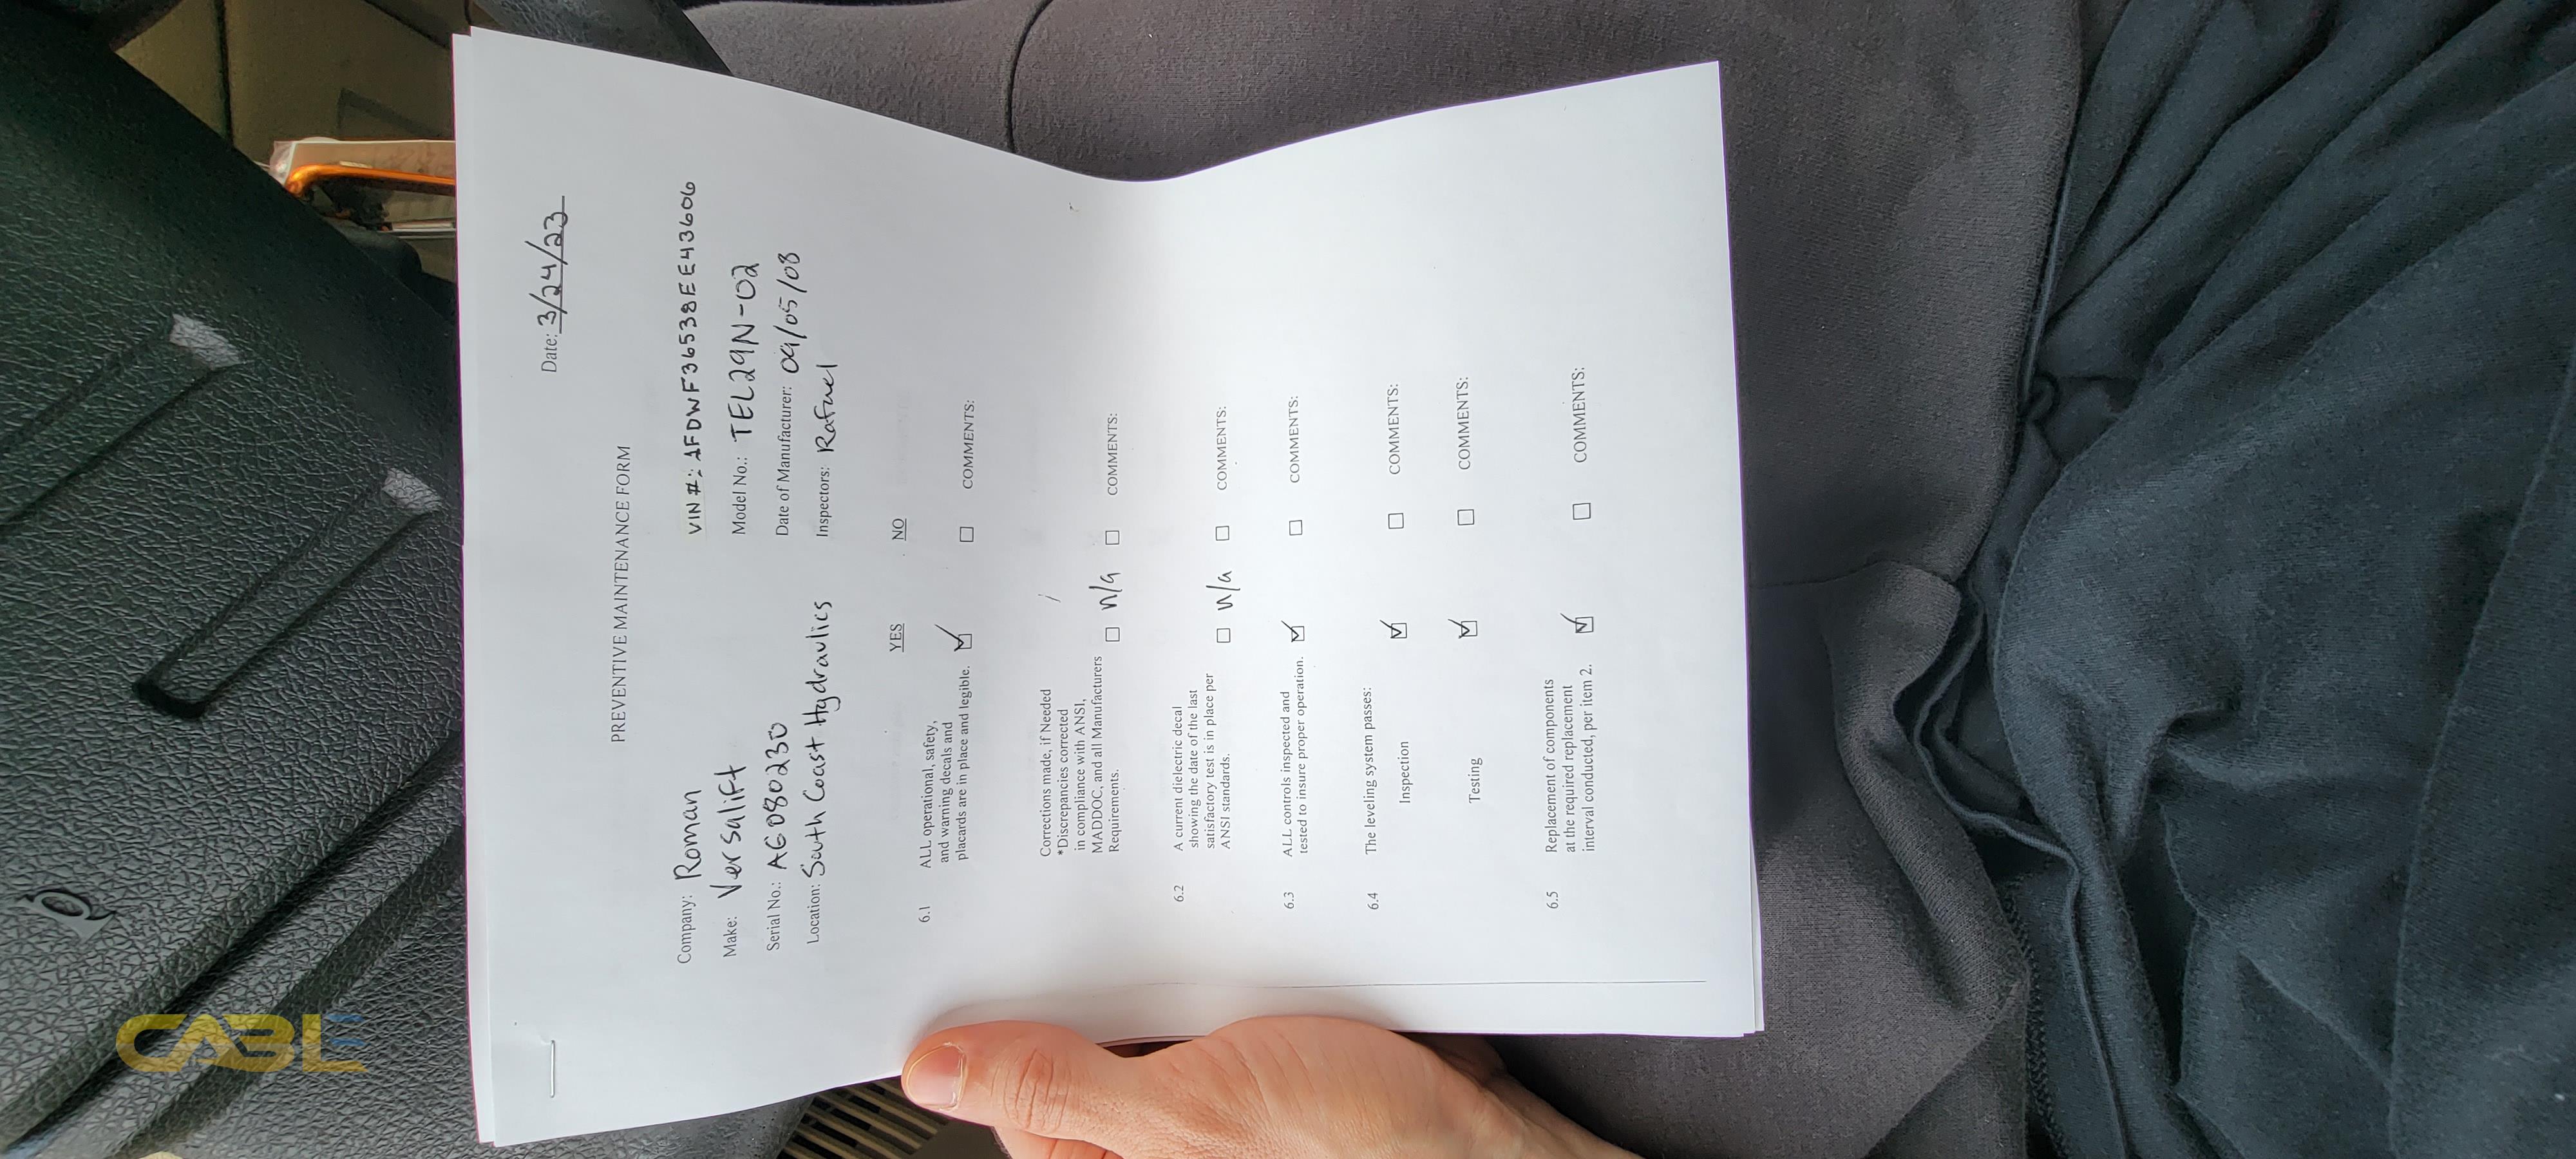 Date: 3/24/23
PREVENTIVE MAINTENANCE FORM
Company: Roman
VIN #: 1FDWF36538EE43606
Make: Versalift
Model No.: TEL29N-02
Serial No.: AG080230
Date of Manufacturer: 09/05/08
Location: South Coast Hydraulics
Inspectors: Rafael
YES NO
6.1 ALL operational, safety,
and warning decals and
placards are in place and legible. COMMENTS:
Corrections made, if Needed
*Discrepancies corrected
in compliance with ANSI,
MADDOC, and all Manufacturers
Requirements. n/a COMMENTS:
6.2 A current dielectric decal
showing the date of the last
satisfactory test is in place per
ANSI standards. n/a COMMENTS:
6.3 ALL controls inspected and
tested to insure proper operation. COMMENTS:
6.4 The leveling system passes:
Inspection COMMENTS:
Testing COMMENTS:
6.5 Replacement of components
at the required replacement
interval conducted, per item 2. COMMENTS:
CABLE